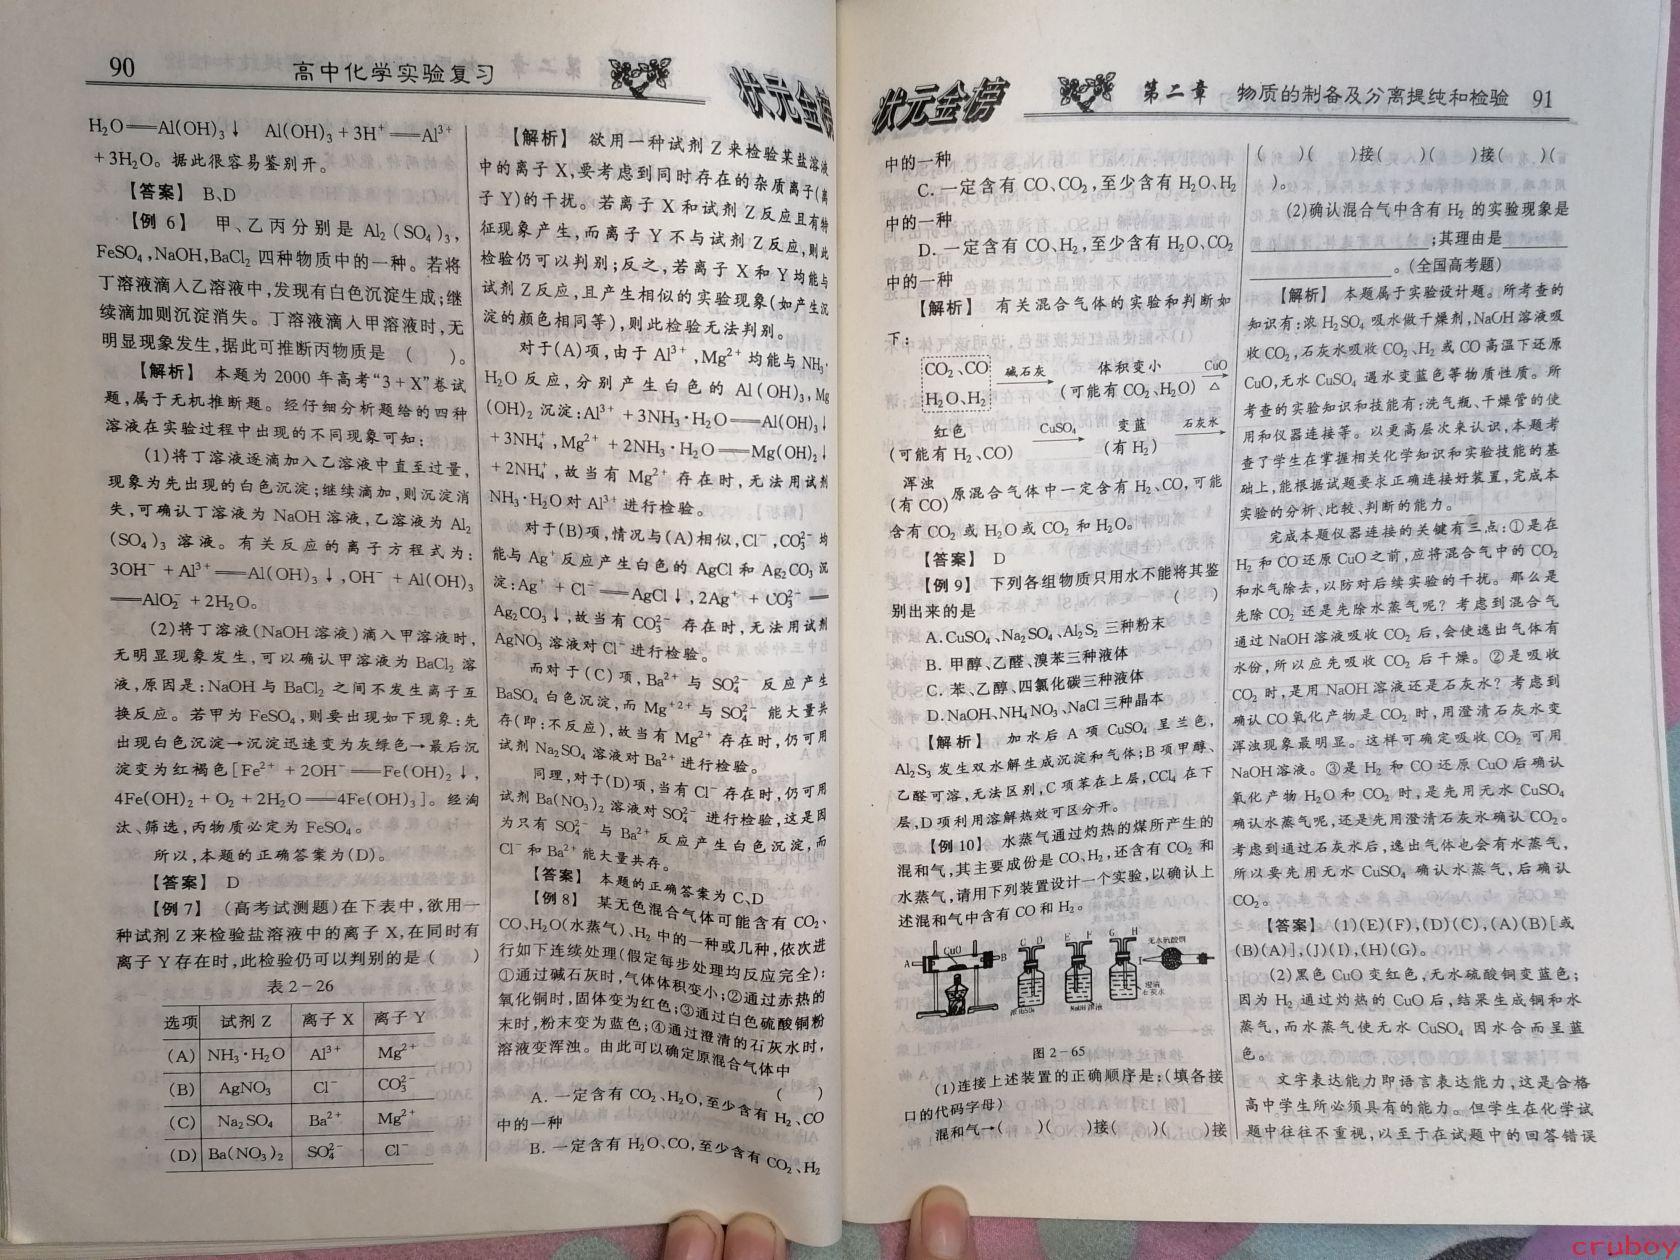 90
高中化学实验复习
状元金榜
H₂O══Al(OH)₃↓ Al(OH)₃+3H⁺══Al³⁺
+3H₂O。据此很容易鉴别开。
【答案】 B、D
【例 6】 甲、乙丙分别是 Al₂(SO₄)₃,
FeSO₄,NaOH,BaCl₂ 四种物质中的一种。若将
丁溶液滴人乙溶液中,发现有白色沉淀生成;继
续滴加则沉淀消失。丁溶液滴人甲溶液时,无
明显现象发生,据此可推断丙物质是 ( )。
【解析】 本题为 2000 年高考“3+X”卷试
题,属于无机推断题。经仔细分析题给的四种
溶液在实验过程中出现的不同现象可知:
(1)将丁溶液逐滴加入乙溶液中直至过量,
现象为先出现的白色沉淀;继续滴加,则沉淀消
失,可确认丁溶液为 NaOH 溶液,乙溶液为 Al₂
(SO₄)₃ 溶液。有关反应的离子方程式为:
3OH⁻+Al³⁺══Al(OH)₃↓,OH⁻+Al(OH)₃
══AlO₂⁻+2H₂O。
(2)将丁溶液(NaOH 溶液)滴入甲溶液时,
无明显现象发生,可以确认甲溶液为 BaCl₂ 溶
液,原因是:NaOH 与 BaCl₂ 之间不发生离子互
换反应。若甲为 FeSO₄,则要出现如下现象:先
出现白色沉淀→沉淀迅速变为灰绿色→最后沉
淀变为红褐色[Fe²⁺+2OH⁻══Fe(OH)₂↓,
4Fe(OH)₂+O₂+2H₂O══4Fe(OH)₃]。经淘
汰、筛选,丙物质必定为 FeSO₄。
所以,本题的正确答案为(D)。
【答案】 D
【例 7】 (高考试测题)在下表中,欲用一
种试剂 Z 来检验盐溶液中的离子 X,在同时有
离子 Y 存在时,此检验仍可以判别的是( )
表 2-26
选项 试剂 Z 离子 X 离子 Y
(A) NH₃·H₂O Al³⁺ Mg²⁺
(B) AgNO₃ Cl⁻ CO₃²⁻
(C) Na₂SO₄ Ba²⁺ Mg²⁺
(D) Ba(NO₃)₂ SO₄²⁻ Cl⁻
【解析】 欲用一种试剂 Z 来检验某盐溶液
中的离子 X,要考虑到同时存在的杂质离子(离
子 Y)的干扰。若离子 X 和试剂 Z 反应且有特
征现象产生,而离子 Y 不与试剂 Z 反应,则此
检验仍可以判别;反之,若离子 X 和 Y 均能与
试剂 Z 反应,且产生相似的实验现象(如产生沉
淀的颜色相同等),则此检验无法判别。
对于(A)项,由于 Al³⁺,Mg²⁺均能与 NH₃·
H₂O 反应,分别产生白色的 Al(OH)₃,Mg
(OH)₂ 沉淀:Al³⁺+3NH₃·H₂O══Al(OH)₃↓
+3NH₄⁺,Mg²⁺+2NH₃·H₂O══Mg(OH)₂↓
+2NH₄⁺,故当有 Mg²⁺ 存在时,无法用试剂
NH₃·H₂O 对 Al³⁺进行检验。
对于(B)项,情况与(A)相似,Cl⁻,CO₃²⁻均
能与 Ag⁺反应产生白色的 AgCl 和 Ag₂CO₃ 沉
淀:Ag⁺+Cl⁻══AgCl↓,2Ag⁺+CO₃²⁻══
Ag₂CO₃↓,故当有 CO₃²⁻ 存在时,无法用试剂
AgNO₃ 溶液对 Cl⁻进行检验。
而对于(C)项,Ba²⁺与 SO₄²⁻ 反应产生
BaSO₄ 白色沉淀,而 Mg⁺²⁺与 SO₄²⁻ 能大量共
存(即:不反应),故当有 Mg²⁺存在时,仍可用
试剂 Na₂SO₄ 溶液对 Ba²⁺进行检验。
同理,对于(D)项,当有 Cl⁻存在时,仍可用
试剂 Ba(NO₃)₂ 溶液对 SO₄²⁻ 进行检验,这是因
为只有 SO₄²⁻ 与 Ba²⁺反应产生白色沉淀,而
Cl⁻和 Ba²⁺能大量共存。
【答案】 本题的正确答案为 C、D
【例 8】 某无色混合气体可能含有 CO₂、
CO、H₂O(水蒸气)、H₂ 中的一种或几种,依次进
行如下连续处理(假定每步处理均反应完全):
①通过碱石灰时,气体体积变小;②通过赤热的
氧化铜时,固体变为红色;③通过白色硫酸铜粉
末时,粉末变为蓝色;④通过澄清的石灰水时,
溶液变浑浊。由此可以确定原混合气体中
( )
A. 一定含有 CO₂、H₂O,至少含有 H₂、CO
中的一种
B. 一定含有 H₂O、CO,至少含有 CO₂、H₂
状元金榜
第二章 物质的制备及分离提纯和检验 91
中的一种
C. 一定含有 CO、CO₂,至少含有 H₂O、H₂
中的一种
D. 一定含有 CO、H₂,至少含有 H₂O、CO₂
中的一种
【解析】 有关混合气体的实验和判断如
下:
CO₂、CO 碱石灰 体积变小 CuO
H₂O、H₂ (可能有 CO₂、H₂O) △
红色 CuSO₄ 变蓝 石灰水
(可能有 H₂、CO) (有 H₂)
浑浊
(有 CO) 原混合气体中一定含有 H₂、CO,可能
含有 CO₂ 或 H₂O 或 CO₂ 和 H₂O。
【答案】 D
【例 9】 下列各组物质只用水不能将其鉴
别出来的是 ( )
A. CuSO₄、Na₂SO₄、Al₂S₂ 三种粉末
B. 甲醇、乙醛、溴苯三种液体
C. 苯、乙醇、四氯化碳三种液体
D. NaOH、NH₄NO₃、NaCl 三种晶本
【解析】 加水后 A 项 CuSO₄ 呈兰色,
Al₂S₃ 发生双水解生成沉淀和气体;B 项甲醇、
乙醛可溶,无法区别,C 项苯在上层,CCl₄ 在下
层,D 项利用溶解热效可区分开。
【例 10】 水蒸气通过灼热的煤所产生的
混和气,其主要成份是 CO、H₂,还含有 CO₂ 和
水蒸气,请用下列装置设计一个实验,以确认上
述混和气中含有 CO 和 H₂。
A CuO B C D E F G H I 无水硫酸铜 J
浓H₂SO₄ NaOH 溶液 澄清石灰水
图 2-65
(1)连接上述装置的正确顺序是:(填各接
口的代码字母)
混和气→( )( )接( )( )接
( )( )接( )( )接( )(
)。
(2)确认混合气中含有 H₂ 的实验现象是
;其理由是
。(全国高考题)
【解析】 本题属于实验设计题。所考查的
知识有:浓 H₂SO₄ 吸水做干燥剂,NaOH 溶液吸
收 CO₂,石灰水吸收 CO₂、H₂ 或 CO 高温下还原
CuO,无水 CuSO₄ 遇水变蓝色等物质性质。所
考查的实验知识和技能有:洗气瓶、干燥管的使
用和仪器连接等。以更高层次来认识,本题考
查了学生在掌握相关化学知识和实验技能的基
础上,能根据试题要求正确连接好装置,完成本
实验的分析、比较、判断的能力。
完成本题仪器连接的关键有三点:①是在
H₂ 和 CO 还原 CuO 之前,应将混合气中的 CO₂
和水气除去,以防对后续实验的干扰。那么是
先除 CO₂ 还是先除水蒸气呢?考虑到混合气
通过 NaOH 溶液吸收 CO₂ 后,会使逸出气体有
水份,所以应先吸收 CO₂ 后干燥。②是吸收
CO₂ 时,是用 NaOH 溶液还是石灰水?考虑到
确认 CO 氧化产物是 CO₂ 时,用澄清石灰水变
浑浊现象最明显。这样可确定吸收 CO₂ 可用
NaOH 溶液。③是 H₂ 和 CO 还原 CuO 后确认
氧化产物 H₂O 和 CO₂ 时,是先用无水 CuSO₄
确认水蒸气呢,还是先用澄清石灰水确认 CO₂。
考虑到通过石灰水后,逸出气体也会有水蒸气,
所以要先用无水 CuSO₄ 确认水蒸气,后确认
CO₂。
【答案】 (1)(E)(F),(D)(C),(A)(B)[或
(B)(A)],(J)(I),(H)(G)。
(2)黑色 CuO 变红色,无水硫酸铜变蓝色;
因为 H₂ 通过灼热的 CuO 后,结果生成铜和水
蒸气,而水蒸气使无水 CuSO₄ 因水合而呈蓝
色。
文字表达能力即语言表达能力,这是合格
高中学生所必须具有的能力。但学生在化学试
题中往往不重视,以至于在试题中的回答错误
cruboy